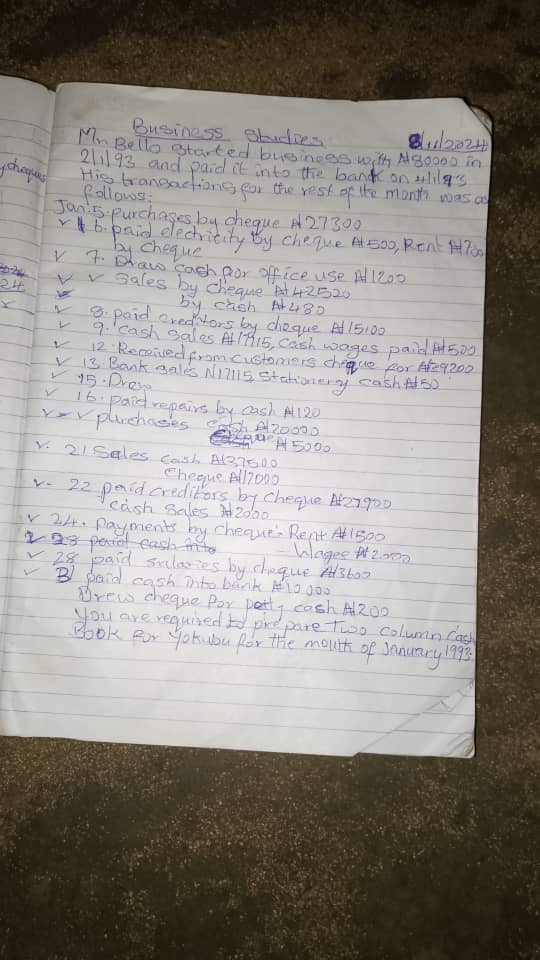 y cheques
24
Business Studies 8/11/2024
Mr Bello started business with ₦80000 in
2/1/93 and paid it into the bank on 4/1/93
His transactions for the rest of the month was as
follows:
Jan: 5. purchases by cheque ₦27300
6. paid electricity by cheque ₦500, Rent ₦700
by cheque
7. Draw cash for office use ₦1200
Sales by cheque ₦42520
by cash ₦480
8. paid creditors by cheque ₦15100
9. Cash sales ₦17115, Cash wages paid ₦500
12. Received from customers cheque for ₦29200
13. Bank sales N17115, Stationery cash ₦50
15. Drew
16. paid repairs by cash ₦120
purchases cash ₦20000
₦5000
21 Sales cash ₦37500
Cheque ₦17000
22 paid creditors by cheque ₦27900
cash sales ₦2000
24. Payments by cheque: Rent ₦1500
28 paid cash into Wages ₦2000
28 paid salaries by cheque ₦3600
paid cash into bank ₦10000
Drew cheque for petty cash ₦200
You are required to prepare Two column Cash
Book for Yokubu for the mouth of January 1993.